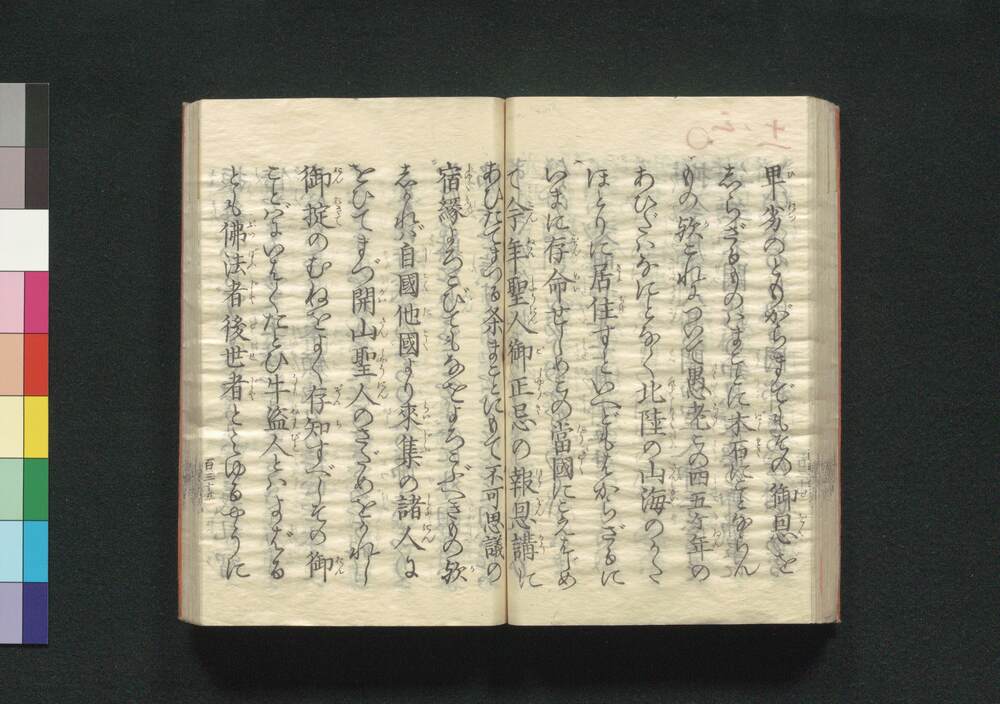 卑劣のともがらまでもその御恩を
しらざるものはまことに木石にことならん
ものか。これによりて愚老この四五ケ年の
あひだはなにとなく北陸の山海のかた
ほとりに居住すといへどもはからざるに
いまに存命せしめこの當國にこえはじめ
て今年聖人御正忌の報恩講に
あひたてまつる条まことにもて不可思議の
宿縁よろこびてもなをよろこぶべきもの歟
しかれば自國他國より來集の諸人に
をひてまづ開山聖人のさだめをかれし
御掟のむねをよく存知すべしその御
ことばにいはくたとひ牛盗人とはよばるる
とも佛法者後世者とみゆるやうに
百三十五